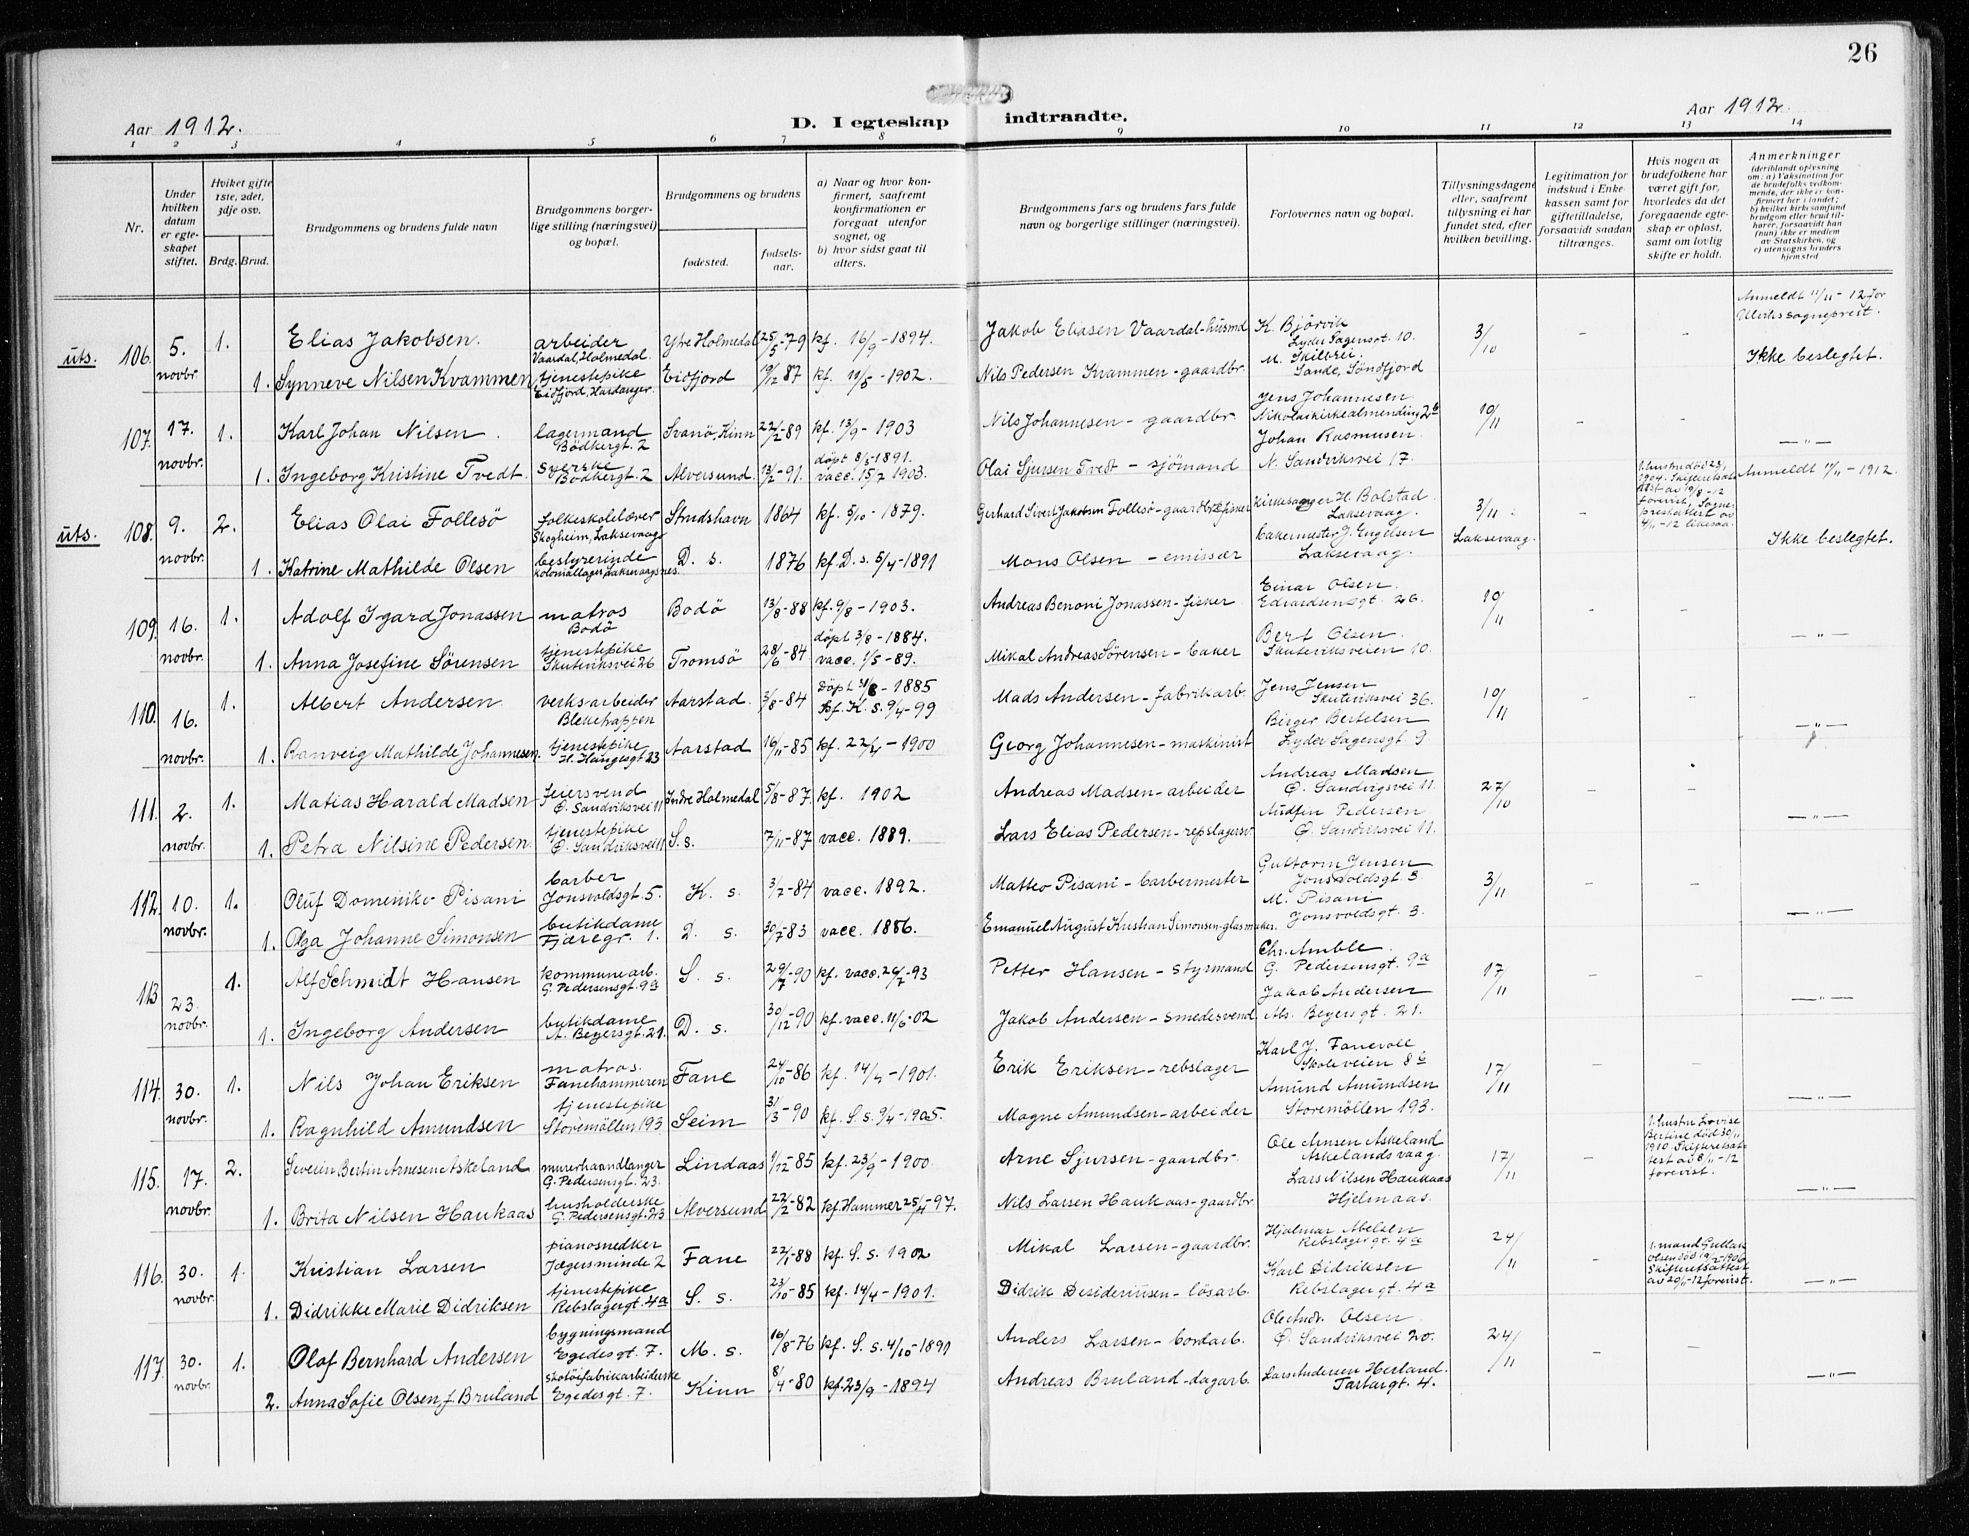 26
Aar 1912.
D. I egteskap indtraadte.
Aar 1912.
1 2 3 4 5 6 7 8 9 10 11 12 13 14
Nr.
Under hvilken datum er egteskapet stiftet.
Hvilket gifte 1ste, 2det, 3dje osv.
Brdg. Brud.
Brudgommens og brudens fulde navn
Brudgommens borgerlige stilling (næringsvei) og bopæl.
Brudgommens og brudens
fødested. fødselsaar.
a) Naar og hvor konfirmert, saafremt konfirmationen er foregaat utenfor sognet, og
b) hvor sidst gaat til alters.
Brudgommens fars og brudens fars fulde navn og borgerlige stillinger (næringsvei).
Forlovernes navn og bopæl.
Tillysningsdagene eller, saafremt tillysning ei har fundet sted, efter hvilken bevilling.
Legitimation for indskud i Enkekassen samt for giftetilladelse, forsaavidt saadan tiltrænges.
Hvis nogen av brudefolkene har været gift før, hvorledes da det foregaaende egteskap er opløst, samt om lovlig skifte er holdt.
Anmerkninger (deriblandt oplysning om: a) Vaksination for de brudefolks vedkommende, der ikke er konfirmert her i landet; b) hvilket kirkesamfund brudgom eller brud tilhører, forsaavidt han (hun) ikke er medlem av Statskirken, og c) utensogns bruders hjemsted
uts. 106. 5. novbr. 1. Elias Jakobsen. arbeider Vaardal, Holmedal. Ytre Holmedal 25/5-79 kf. 16/9-1894. Jakob Eliasen Vaardal-husmd K. Bjørvik Lyder Sagensgt. 10. 3/10 - - Anmeldt 11/11-12 for sogneprest.
1. Synneve Nilsen Kvammen tjenestepike Eidfjord, Hardanger. Eidfjord 19/12 87 kf. 11/5-1902. Nils Pedersen Kvammen-gaardbr. M. Skilbrei. Sande, Søndfjord Ikke beslegtet.
107. 17. novbr. 1. Karl Johan Nilsen. lagermand Bødkergt. 2 Svanø, Kinn 22/2-89 kf. 13/9-1903 Nils Johannesen-gaardbr. Jens Johannesen Nikolaikirkealmending 2b 10/11 - - -"-
1. Ingeborg Kristine Tvedt syerske Bødkergt. 2 Alversund. 13/2-91. døpt 8/3-1891. vacc. 15/7 1903. Olai Sjursen Tvedt - sjømand Johan Rasmusen. N. Sandviksvei 17.
uts. 108. 9. novbr. 2. Elias Olai Follesø folkeskolelærer Skogheim, Laksevaag Strudshavn 1864 kf. 5/10-1879. Gerhard Sivert Jakobsen Follesø-gaardbr & fisker kirkesanger H. Bolstad Laksevaag. 3/11. Laksevaag. - 1. hustru død 23/1 1904. Skifteretsattest av 19/8-12 forevist, Sogneprestattest av 4/11-12 likesaa. Anmeldt 11/11-1912.
1. Katrine Mathilde Olsen bestyrerinde kolonallager, Laksevaagsnes. D. s. 1876 kf. D. s. 5/4-1891 Mons Olsen - emissær bakermester J. Engelsen Laksevaag. Ikke beslegtet.
109. 16. novbr. 1. Adolf Sgard Jonassen matros Bodø Bodø 13/8-88 kf. 9/8-1903. Andreas Benoni Jonassen-fisker Einar Olsen. Edvardsensgt. 26. 10/11 - - -"-
1. Anna Josefine Sørensen tjenestepike Skuteviksvei 26 Tromsø 28/6-84 døpt 3/8-1884. vacc. 1/5-89. Mikal Andreas Sørensen-baker Bert Olsen. Skuteviksveien 10.
110. 16. novbr. 1. Albert Andersen verksarbeider Blekehappen Aarstad. 3/8-84 døpt 31/8-1885 kf. K. s. 9/4-99 Mads Andersen-fabrikarb. Jens Jensen Skuteviksvei 36. 10/11 - - -"-
1. Ranveig Mathilde Johannesen. tjenestepike H. Haugesgt 23 Aarstad 16/11-85 kf. 22/4-1900 Georg Johannesen-maskinist Birger Bertelsen Lyder Sagensgt. 9.
111. 2. novbr. 1. Matias Harald Madsen feiersvend Ø. Sandviksvei 11 Indre Holmedal 5/8-87. kf. 1902 Andreas Madsen-arbeider Andreas Madsen Ø. Sandvigsvei 11. 27/10 - -
1. Petra Nilsine Pedersen tjenestepike Ø. Sandviksvei 11 S. s. 7/11-87 vacc. 1889. Lars Elias Pedersen-repslagersv. Audfin Pedersen Ø. Sandviksvei 11.
112. 10. novbr. 1. Oluf Domeniko Pisani barber Jonsvoldsgt. 5. K. s. 3/2-84 vacc. 1892. Matteo Pisani-barbermester Guttorm Jensen Jonsvoldsgt 3 3/11 - - -"-
1. Olga Johanne Simonsen butikdame Fjæregr. 1. D. s. 30/7-83 vacc. 1886. Emanuel August Kristian Simonsen-glasmaker. M. Pisani Jonsvoldsgt. 3.
113 23. novbr. 1. Alf Schmidt Hansen kommunearb. G. Pedersensgt. 9a S. s. 29/7-90 kf. vacc. 26/7-93 Petter Hansen-styrmand Chr. Amble. G. Pedersensgt. 9a 17/11 - - -"-
1. Ingeborg Andersen butikdame A. Beyersgt. 21. D. s. 30/12-90 kf. vacc. 11/6-02 Jakob Andersen-smedesvend Jakob Andersen Abs. Beyersgt. 21.
114. 30. novbr. 1. Nils Johan Eriksen matros. Fanehammeren Fane 24/10-86 kf. 14/4-1901. Erik Eriksen-rebslager Karl J. Fanevoll Skoleveien 8b 17/11 - -
1. Ragnhild Amundsen tjenestepike Storemøllen 193 Seim 31/3-90 kf. S. s. 9/4-1905. Magne Amundsen-arbeider Amund Amundsen Storemøllen 193.
115. 17. novbr. 2. Severin Bertin Arnesen Askeland murerhaandlanger G. Pedersensgt. 23. Lindaas 1/12-85 kf. 23/9-1900. Arne Sjursen-gaardbr. Ole Arnsen Askeland Askelandsvaag. 17/11 - 1. hustru Lovise Bertine død 30/11 1910. Skifteretsattest av 8/11-12 forevist. -"-
1. Brita Nilsen Haukaas husholderske G. Pedersensgt. 23 Alversund 22/2-82 kf. Hammer 25/4-97. Nils Larsen Haukaas-gaardbr. Lars Nilsen Haukaas Hjelmaas.
116. 30. novbr. 1. Kristian Larsen pianosnedker Jægersminde 2 Fane 22/1-88 kf. S. s. 1902 Mikal Larsen-gaardbr. Hjalmar Abelsen Rebslagergt. 4a 24/11 - 1. mand Gullak Olsen død 19/2-1906. Skifteretsattest av 20/11-12 forevist. -"-
1. Didrikke Marie Didriksen tjenestepike Rebslagergt. 4a S. s. 23/10-85 kf. 14/4-1901. Didrik Desideriusen-løsarb. Karl Didriksen Rebslagergt. 4a
117 30. novbr. 1. Olaf Bernhard Andersen bygningsmand Egedesgt. 7. M. s. 16/8-76 kf. S. s. 4/10-1891 Anders Larsen-bordarb. Ole Andr. Olsen Ø. Sandviksvei 20. 24/11 - - -"-
2. Anna Sofie Olsen f. Bruland skotøifabrikarbeiderske Egedesgt. 7. Kinn 8/4-80 kf. 23/9-1894 Andreas Bruland-dagarb. Lars Andersen Herland. Tartargt. 4.